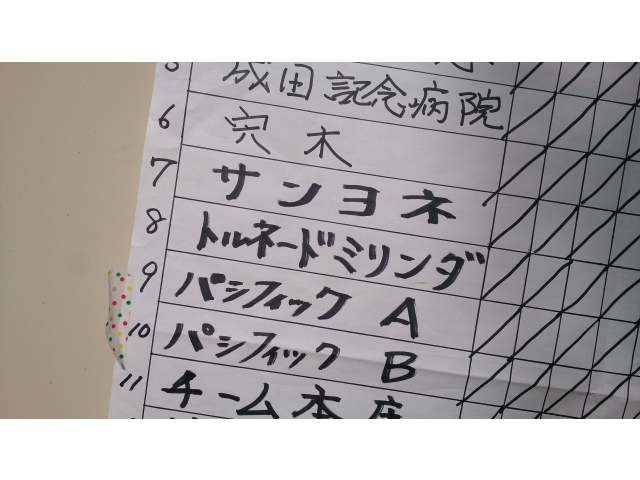 成田記念病院
6 宍木
7 サンヨネ
8 トルネードミリンダ
9 パシフィック A
10 パシフィック B
11 チーム本店